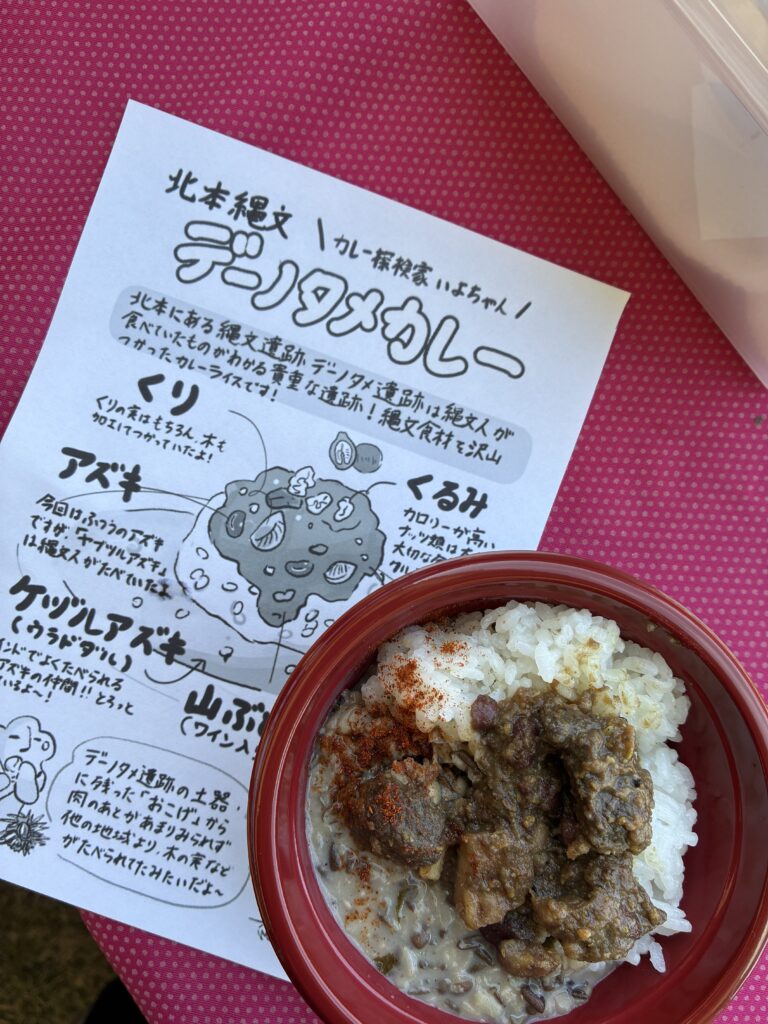 北本縄文
\ カレー探検家 いよちゃん /
デーノタメカレー
北本にある縄文遺跡 デーノタメ遺跡は縄文人が
食べていたものがわかる貴重な遺跡！縄文食材を沢山
つかったカレーライスです！
くり
くりの実はもちろん、木も
加工してつかっていたよ！
アズキ
今回はふつうのアズキ
ですが、「ヤブツルアズキ」
は縄文人がたべていたよ
くるみ
カロリーが高い
ナッツ類は
大切な
クル
ケヅルアズキ
(ウラドダル)
インドでよくたべられる
アズキの仲間!! とろっと
いるよ〜！
山ぶ
(ワイン入
デーノタメ遺跡の土器、
に残った「おこげ」から
肉のあとがあまりみられず
他の地域より、木の実など
がたべられてたみたいだよ〜